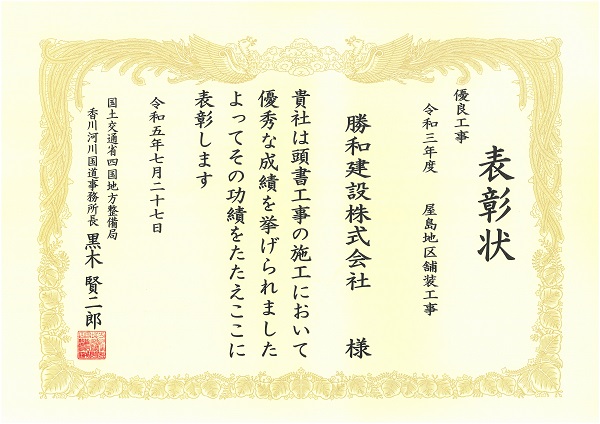 表彰状
優良工事
令和三年度 屋島地区舗装工事
勝和建設株式会社 様
貴社は頭書工事の施工において
優秀な成績を挙げられました
よってその功績をたたえここに
表彰します
令和五年七月二十七日
国土交通省四国地方整備局
香川河川国道事務所長 黒木 賢二郎